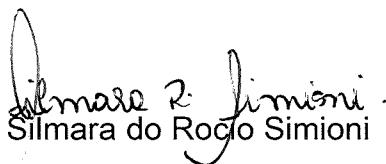 Silmara R. Simioni.
Silmara do Rocio Simioni